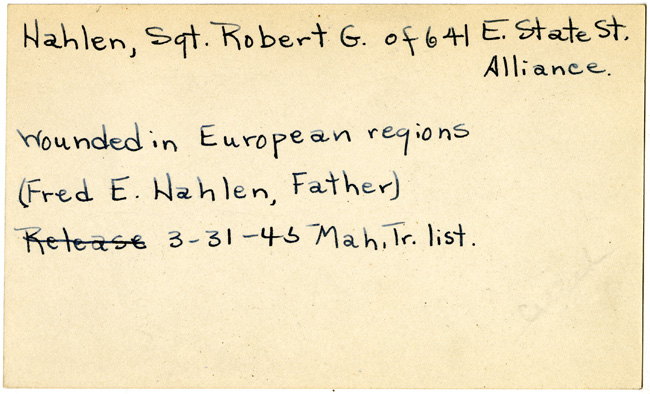 Hahlen, Sgt. Robert G. of 641 E. State St.
Alliance.
Wounded in European regions
(Fred E. Hahlen, Father)
Release 3-31-45 Mah. Tr. list.